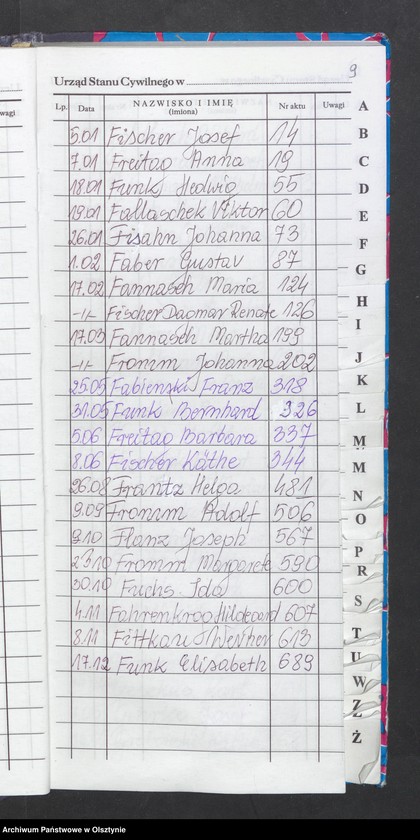 9
Urząd Stanu Cywilnego w
Lp. Data NAZWISKO I IMIĘ (imiona) Nr aktu Uwagi
wagi
5.01 Fischer Josef 14
7.01 Freitag Anna 19
18.01 Funk Hedwig 55
19.01 Fallaschek Viktor 60
26.01 Fisahn Johanna 73
1.02 Faber Gustav 87
17.02 Fannasch Maria 124
-11- Fischer Dagmar Renate 126
17.03 Fannasch Martha 199
-11- Fromm Johanna 202
25.05 Fabienski Franz 318
31.05 Funk Bernhard 326
5.06 Freitag Barbara 337
8.06 Fischer Käthe 344
26.08 Frantz Helga 481
9.09 Fromm Adolf 506
9.10 Flanz Joseph 567
23.10 Fromm Margarete 590
30.10 Fuchs Ida 600
4.11 Fahrenkrog Hildegard 607
8.11 Fittkau Werner 613
17.12 Funk Elisabeth 689
A
B
C
D
E
F
G
H
I
J
K
L
M
M
N
O
P
R
S
T
U
W
Z
Ż
Archiwum Państwowe w Olsztynie